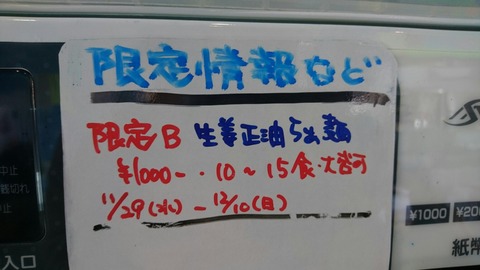 限定情報など
限定B 生姜正油らぁ麺
¥1000-・10〜15食・大盛可
11/29(水)-12/10(日)
中止
着切れ
中止
入口
¥1000
紙幣